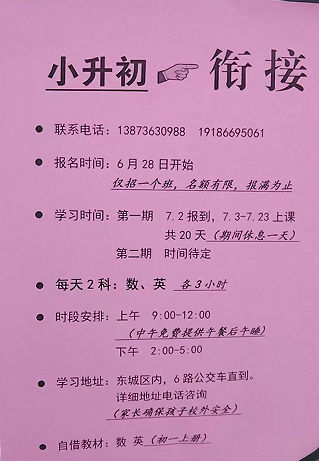 小升初 衔接
● 联系电话：13873630988 19186695061
● 报名时间：6月28日开始
仅招一个班，名额有限，报满为止
● 学习时间：第一期 7.2报到，7.3-7.23上课
共20天（期间休息一天）
第二期 时间待定
● 每天2科：数、英 各3小时
● 时段安排：上午 9:00-12:00
（中午免费提供午餐后午睡）
下午 2:00-5:00
● 学习地址：东城区内，6路公交车直到。
详细地址电话咨询
（家长确保孩子校外安全）
● 自借教材：数 英（初一上册）